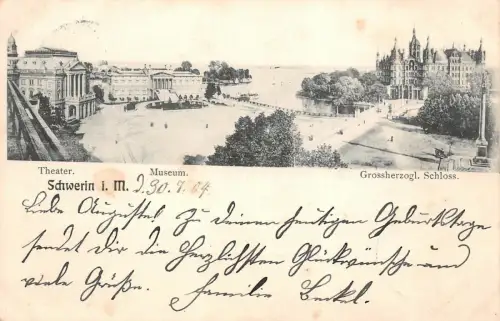 Theater. Museum. Grossherzogl. Schloss.
Schwerin i. M. d. 30.7.04
Liebe Auguste! Zu Deinem heutigen Geburtstage
sendet Dir die herzlichsten Glückwünsche und
viele Grüße. Familie Beckel.